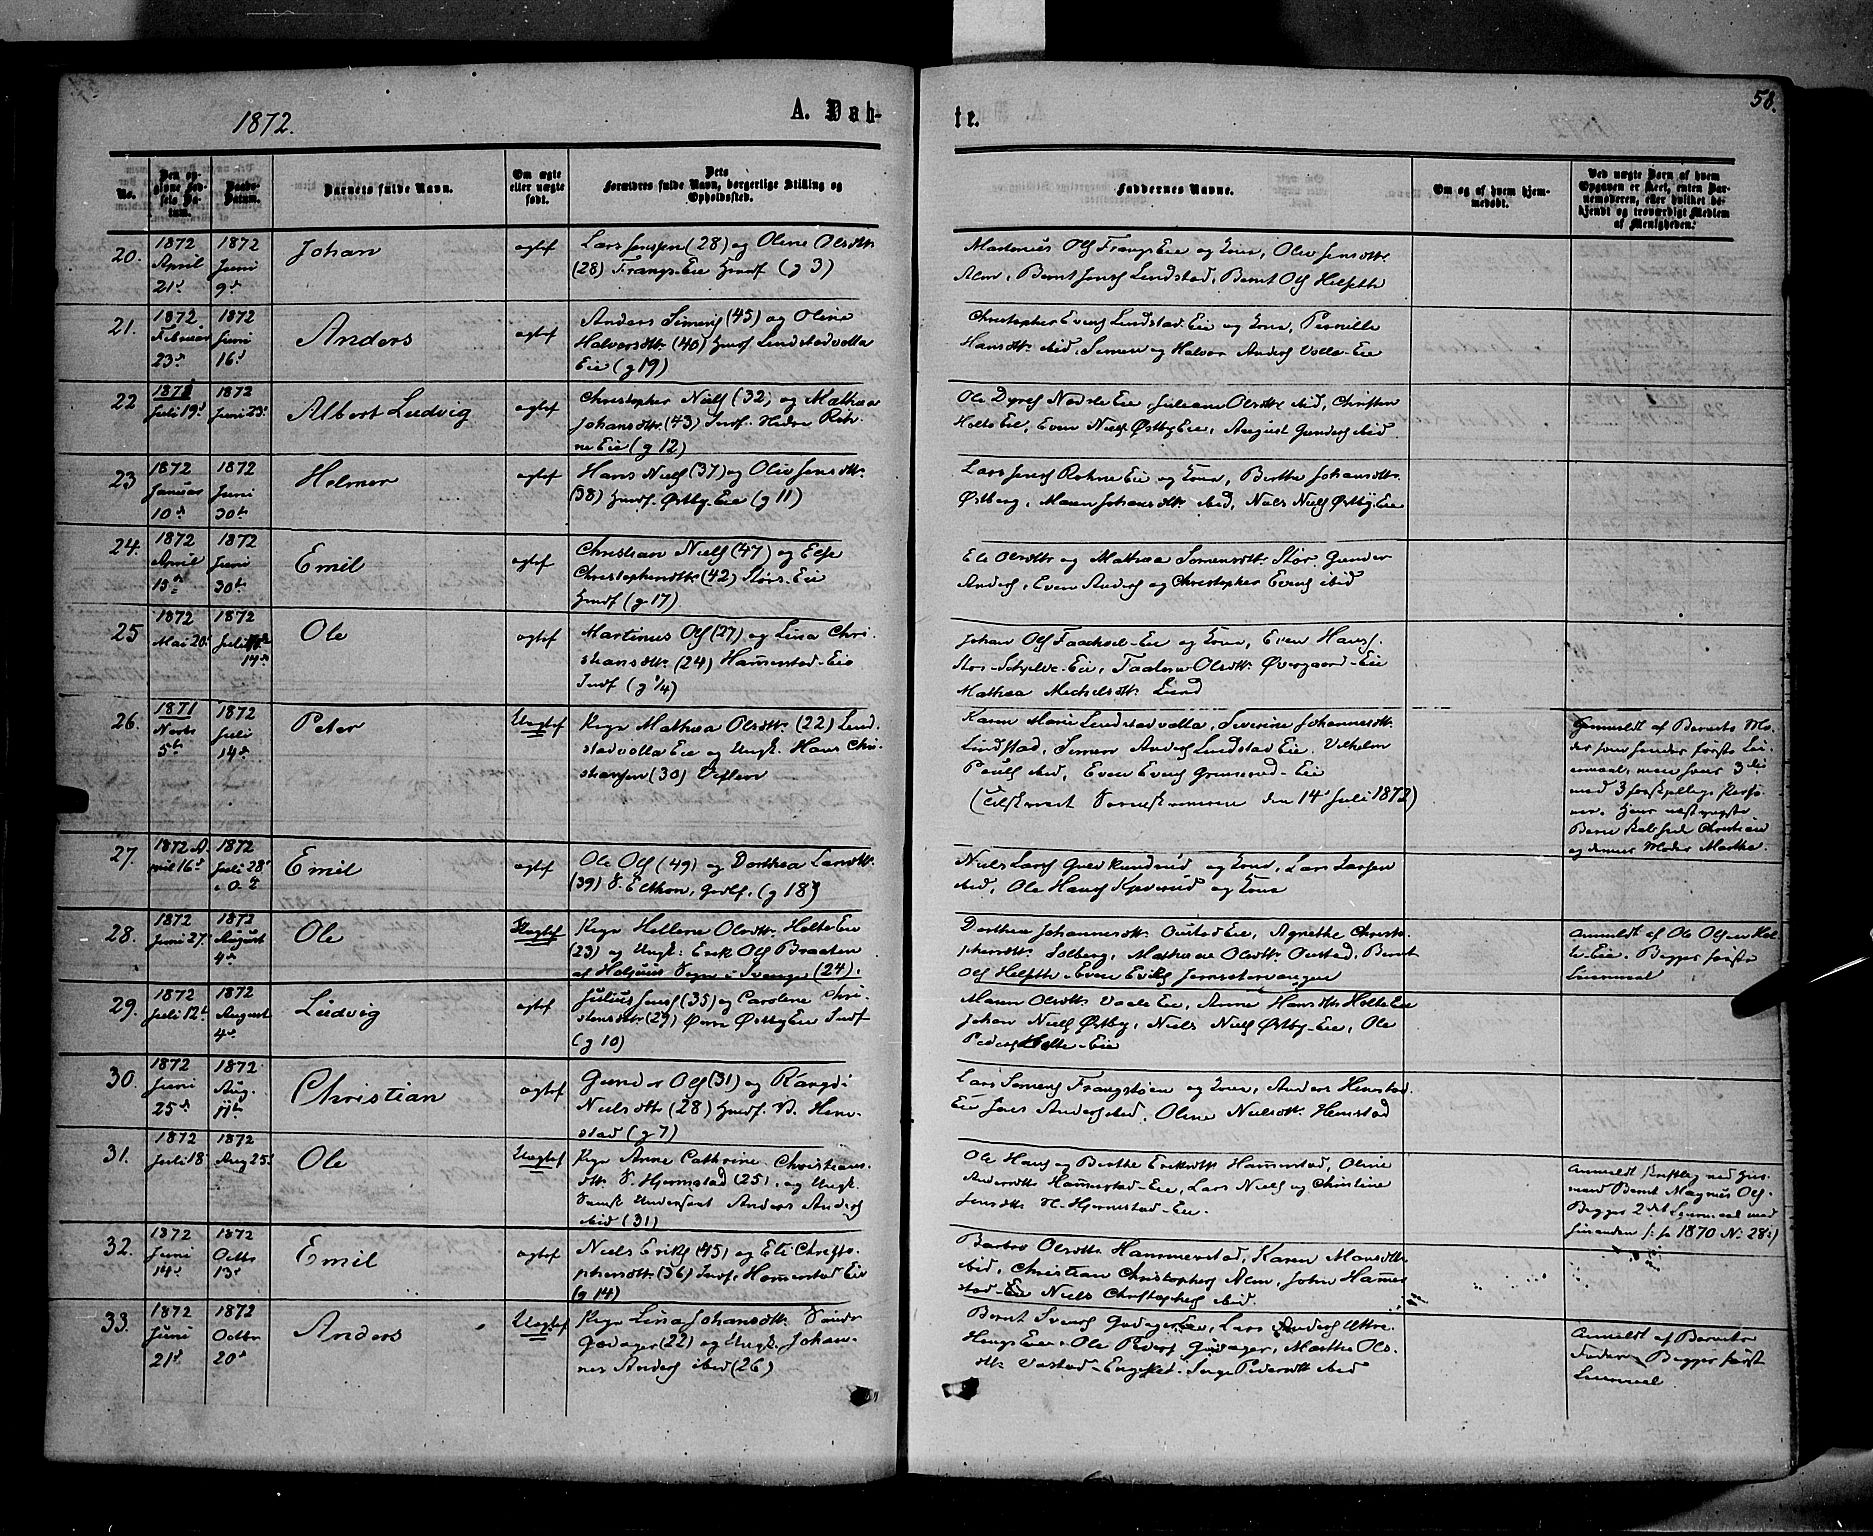 1872.
A. Dab-
te.
58.
No.
Den op-
givne Fød-
sels Da-
tum.
Daabs-
Datum.
Barnets fulde Navn.
Om ægte
eller uægte
født.
Dets
Forældres fulde Navn, borgerlige Stilling og
Opholdssted.
Faddernes Navne.
Om og af hvem hjem-
medøbt.
Ved uægte Børn af hvem
Opgaven er skeet, enten Bar-
nemoderen, eller hvilket be-
kjendt og troværdigt Medlem
af Menigheden.
20.
1872
April
21d
1872
Juni
9d
Johan
ægtef
Lars Jensen (28) og Oline Olsdtr.
(28) Frangs-Eie Husmf (g 3)
Martinius Ols Frangs Eie og Kone, Oliv Jensdtr.
Alm, Bernt Jens Lindstad, Bernt Ols Helseth
21.
1872
Februar
23d
1872
Juni
16d
Anders
ægtef
Anders Simens (45) og Oline
Halvorsdtr. (40) Husmf Lindstadvolla
Eie (g 19)
Christopher Evens Lindstad-Eie og Kone, Pernille
Hansdtr. ibid, Simen og Halvor Anders Volla-Eie
22
1871
Juli 19d
1872
Juni 23d
Albert Ludvig
ægtef
Christopher Niels (32) og Mathea
Johansdtr. (43) Indf.
Eie (g 12)
Ole Dyres Eie, Juliane Olsdtr ibid, Christian
Holte Eie, Even Niels Østby Eie, August Gunders ibid
23
1872
Januar
10d
1872
Juni
30te
Helmer
ægtef
Hans Niels (37) og Oliv Jensdtr.
(38) Husmf. Østby-Eie (g 11)
Lars Jens Rohne Eie og Kone, Berthe Johansdtr.
Østberg, Maren Johansdtr. ibid, Niels Niels Østby-Eie
24.
1872
April
15d
1872
Juni
30te
Emil
ægtef
Christian Niels (47) og Else
Christophersdtr. (42) Stors-Eie
Husmf (g 17)
Ele Olsdtr og Mathea Simensdtr. Stor, Gunder
Anders, Even Anders og Christopher Evens ibid
25
1872
Mai 20d
1872
Juli
14d
Ole
ægtef
Martinus Ols (27) og Lina Chri-
stiansdtr. (24) Hammerstad-Eie
Indf (g 1/4)
Johan Ols Eie og Kone, Even Hans
Stor-Skjelve-Eie, Olsdtr. Overgaard-Eie
Mathea Michelsdtr. Lund
26.
1871
Novbr
5te
1872
Juli
14d
Peter
Uægtef
Pige Mathea Olsdtr. (22) Lind-
stadvolla Eie og Ungk. Hans Chri-
stiansen (30)
Karen Marie Lindstadvolla, Severine Johannesdtr.
Lindstad, Simen Anders Lindstad Eie, Vilhelm
Pauls ibid, Even Evens Grimerud-Eie
den 14d Juli 1872)
Anmeldt af Barnets Mo-
der som hendes første Lei-
ermaal, men hans 3die
med 3 forskjellige Perso-
ner. Hans næstyngste
Barn Christian
og dennes Moder Marthe.
27.
1872 A-
pril 16d
1872
Juli 28d
Emil
ægtef
Ole Ols (49) og Dorthea Larsdtr.
(39) S. Elthon, Gaardf. (g 18)
Niels Lars og Kone, Lars Larsen
ibid, Ole Hans og Kone
28.
1872
Juni 27d
1872
August
4d
Ole
Uægtef
Pige Hellene Olsdtr. Holte Eie
(23) og Ungk: Erik Ols Braaten
af Sogn i (24).
Dorthea Johannesdtr. Oustad Eie, Agnethe Christo-
phersdtr. Solberg, Mathea Olsdtr. Oustad, Bernt
Ols Helseth-Even Eriks
Anmeldt af Ole Olsen Hol-
te Eie. Begges første
Leiermaal
29.
1872
Juli 12te
1872
August
4d
Ludvig
ægtef
Julius Jens (35) og Caroline Chri-
stensdtr. (29) Østby Eie Indf
(g 10)
Maren Olsdtr. Volla Eie, Anne Hansdtr. Holte Eie
Johan Niels Østby, Niels Niels Østby-Eie, Ole
Peders Holte-Eie
30.
1872
Juni
25d
1872
Aug.
11te
Christian
ægtef
Gunder Ols (31) og Rangdi
Nielsdtr. (28) Husmf. V. Hem-
stad (g 7)
Lars Simens Frangstøen og Kone, Anders Hemstad
Eie, Jens Anders ibid, Oline Nielsdtr. Hemstad
31.
1872
Juli 18
1872
Aug 25d
Ole
Uægtef
Pige Anne Cathrine Christians-
dtr. S. Hjermstad (25), og Ungk.
Anders Anders
ibid (31)
Ole Hans og Berthe Eriksdtr. Hammerstad, Oline
Andersdtr. Hammerstad-Eie, Lars Niels og Christine
Jensdtr. N. Hjermstad-Eie.
Anmeldt skriftlig ved Hus-
mand Bernt Magnus Ols.
Begges 2det Leiermaal med
hinanden (: 1870 No 28:)
32.
1872
Juni
14d
1872
Octbr
13d
Emil
ægtef
Niels Eriks (45) og Eli Christo-
phersdtr. (36) Indf. Hammerstad Eie
(g 14)
Barbro Olsdtr. Hammerstad, Karen Hansdtr.
ibid, Christian Christophers Alm, John Hammer-
stad-Eie Niels Christophers ibid.
33.
1872
Juni
21d
1872
Octbr
20d
Anders
Uægtef
Pige Lina Johansdtr. Søndre
Godager (22) og Ungk. Johan-
nes Anders ibid (26)
Bernt Svens Godager Eie, Lars Anders Uttre
Eie, Ole Peders Godager, Marthe Ols-
dtr. Vastad-Enger, Inge Pedersdtr ibid
Anmeldt af Barnets
Fader. Begges første
Leiermaal